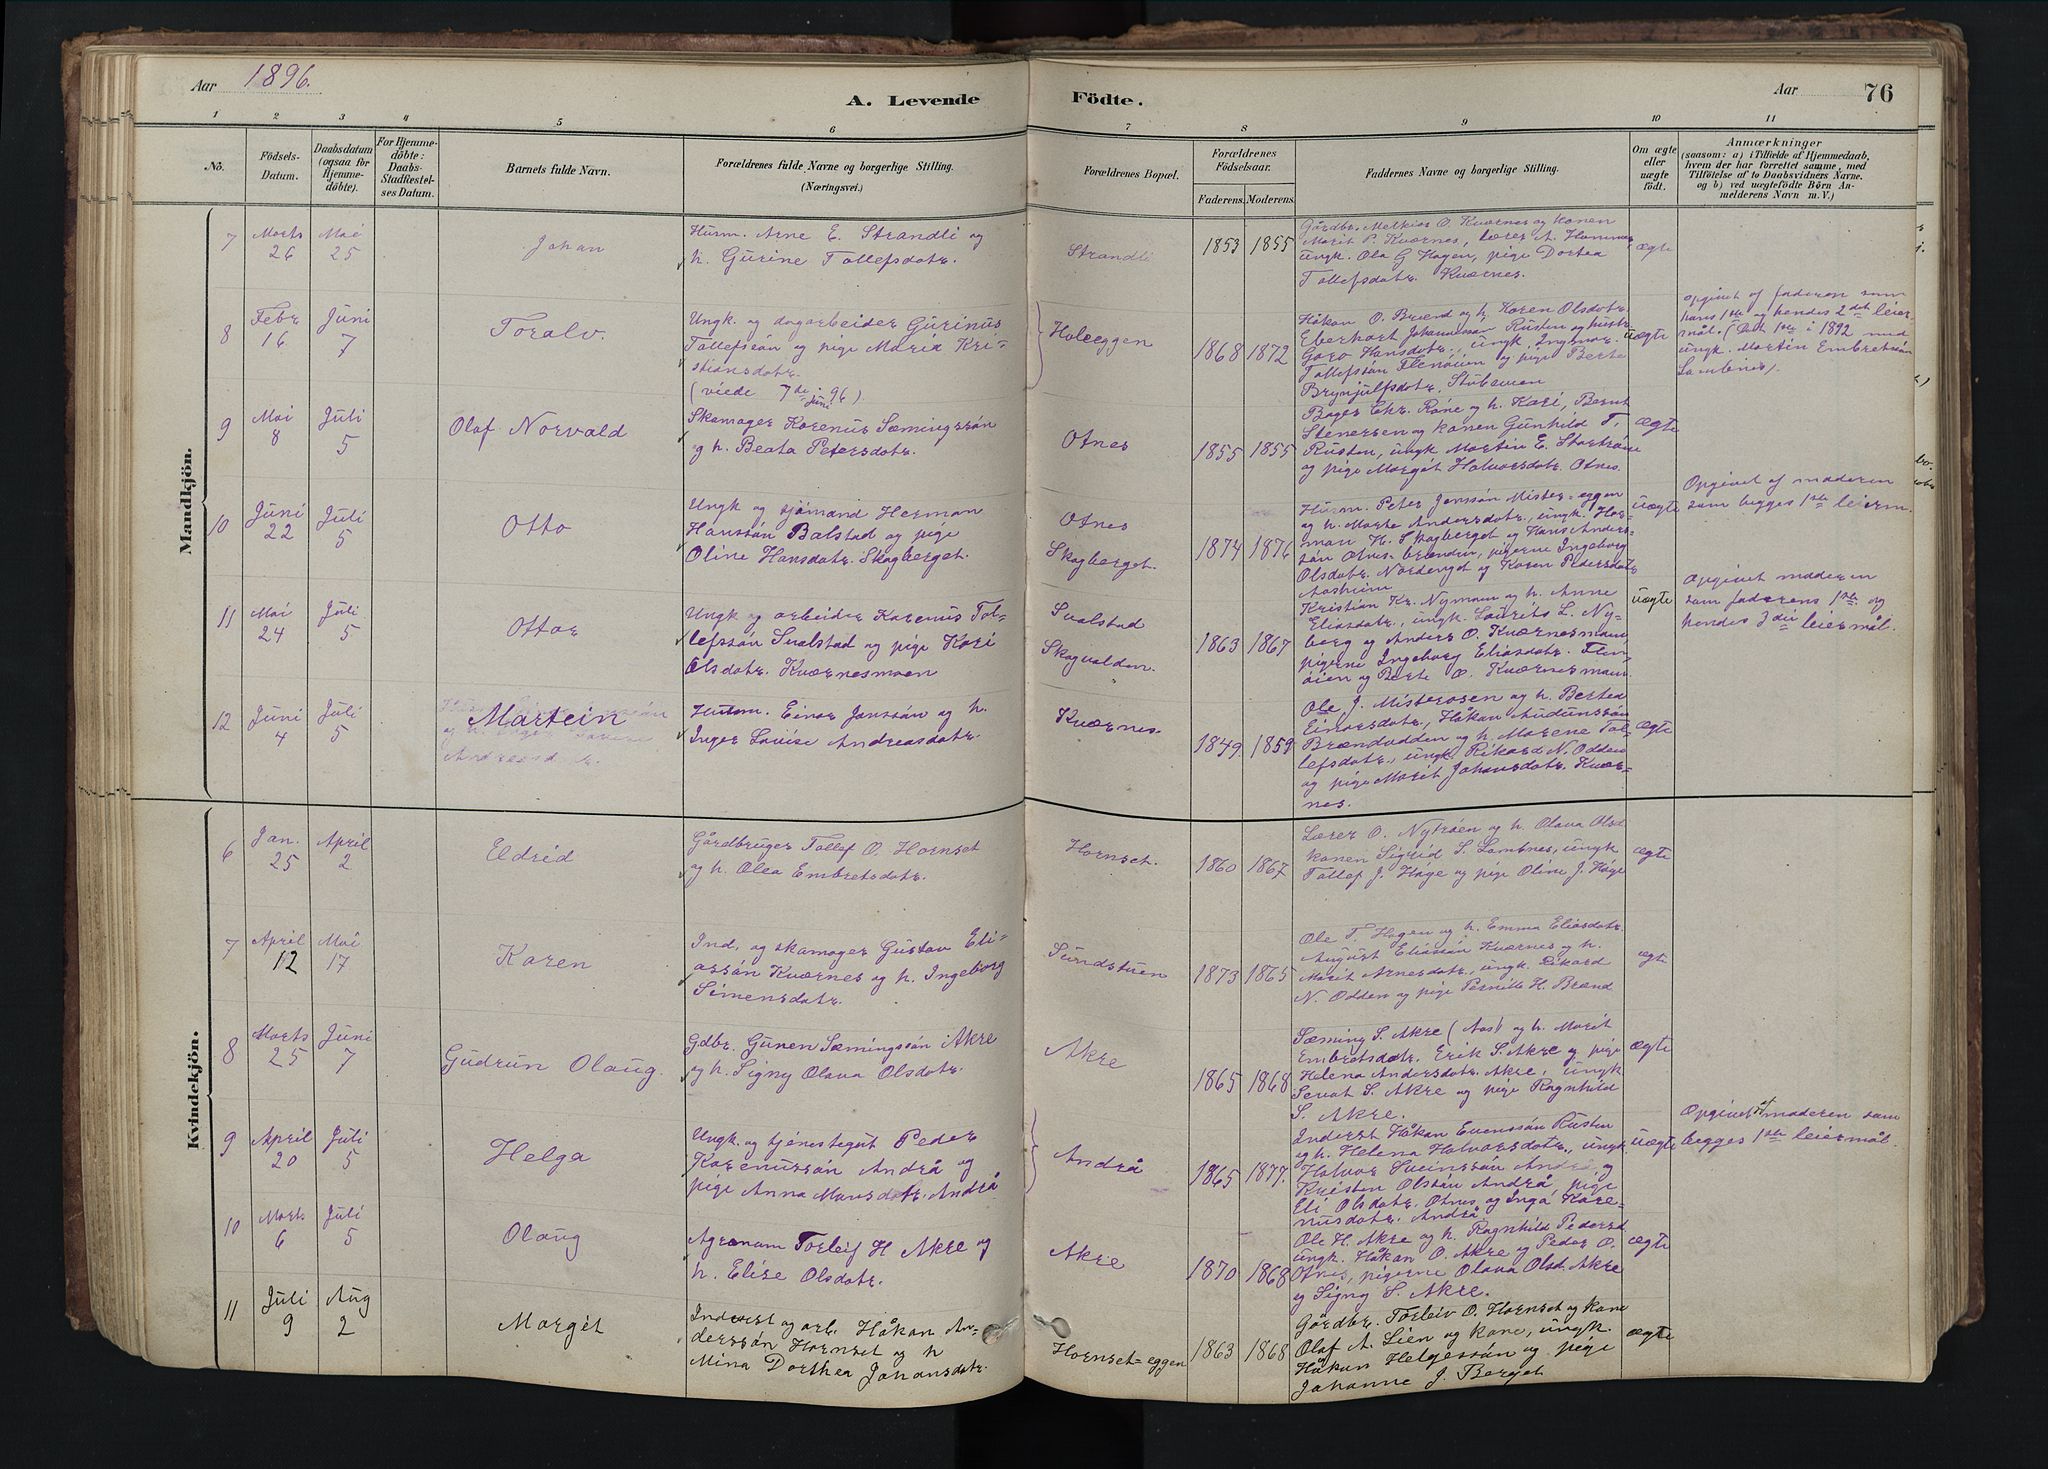 Aar 1896.
A. Levende Födte.
Aar
76
1 2 3 4 5 6 7 8 9 10 11
No.
Födsels-Datum.
Daabsdatum (ogsaa for Hjemme-döbte).
For Hjemme-döbte: Daabs-Stadfæstel-ses Datum.
Barnets fulde Navn.
Forældrenes fulde Navne og borgerlige Stilling. (Næringsvei.)
Forældrenes Bopæl.
Forældrenes Födselsaar.
Faderens. Moderens.
Faddernes Navne og borgerlige Stilling.
Om ægte eller uægte födt.
Anmærkninger
(saasom: a) i Tilfælde af Hjemmedaab,
hvem der har forrettet samme, med
Tilföielse af to Daabsvidners Navne.
og b) ved uægtefödte Börn An-
melderens Navn m. V.)
Mandkjön.
7 Marts 26 Mai 25
Johan
Husm. Arne E. Strandli og
h. Gurine Tollefsdatr.
Strandli
1853 1855
Gårdbr. Melkior O. Kværnes og konen
Marit P. Kværnes, Lærer A. Hammer,
ungk. Ola G Hagen, pige Dortea
Tollefsdatr. Kværnes.
ægte
8 Febr 16 Juni 7
Toralv.
Ungk. og dagarbeider Gurinus
Tollefssön og pige Maria Kri-
stiansdatr.
(viede 7de juni 96)
Holeeggen
1868 1872
Håkon O. Brænd og h. Karen Olsdatr.
Eberhart Johannessön Rusten og hustr.
Goro Hansdatr., ungk. Ingbvar
Tollefssön Flenöien og pige Berte
Brynjulfsdotr. Stubmoen
uægte
Opgivet af faderen som
hans 1ste og hendes 2det leier
mål. (Det 1ste i 1892 med
ungk. Martin Embretsön
Lombnes).
9 Mai 8 Juli 5
Olaf Norvald
Skomager Korenus Sæmingssön
og h. Beata Petersdatr.
Otnes
1855 1855
Bager Chr. Röne og h. Kari, Bernt
Stenersen og konen Gunhild T.
Rusten, ungk Martin E. Storström
og pige Margit Halvorsdatr. Otnes.
ægte
10 Juni 22 Juli 5
Otto
Ungk og sjömand Herman
Hanssön Balstad og pige
Oline Hansdatr. Skogberget.
Otnes
Skogberget.
1874 1876
Husm. Peter Jenssön Mister-eggen
og h. Marte Andersdatr., ungk. Her-
man H. Skogberget og Hans Anders-
sön Otnes-brænden, pigerne Ingeborg
Olsdatr. Nordenget og Karen Pedersdatr
Aasheim
uægte
Opgivet af moderen
som begges 1ste leierm.
11 Mai 24 Juli 5
Ottar
Ungk og arbeider Karenus Tol-
lefssön Svalstad og pige Kari
Olsdatr. Kværnesmoen
Svalstad
Skogvolden.
1863 1867
Kristian Kr. Nymoen og h. Anne
Eliasdatr., ungk. Laurits L. Ny-
berg og Anders O. Kværnesmoen
pigerne Ingeborg Eliasdatr. Flen-
öien og Berte O. Kværnesmoen
uægte
Opgivet moderen
som faderens 1ste og
hendes 3die leiermål.
12 Juni 4 Juli 5
Martein
Husm. Einar Jonssön og h.
Inger Lovise Andreasdatr.
Kværnes.
1849. 1859
Ole J. Misterosen og h. Bertea
Einarsdatr., Håkon Audunssön
Brændvolden og h. Marene Tol-
lefsdatr., ungk. Rikard N. Odden
og pige Marit Johansdatr. Kvær-
nes.
ægte
Kvindekjön.
6 Jan. 25 April 2
Eldrid
Gårdbruger Tollef O. Hornset
og h. Olea Embretsdatr.
Hornset.
1860 1867
Lærer O. Nytröen og h. Olava Olsd
konen Sigrid S. Lombnes, ungk
Tollef J. Håge og pige Oline J. Håge
ægte
7 April 12 Mai 17
Karen
Ind. og skomager Gustav Eli-
assön Kværnes og h. Ingeborg
Simensdatr.
Sundstuen
1873 1865
Ole T. Hagen og h. Emma Eliasdatr.
August Eliassön Kværnes og h.
Marit Arnesdatr., ungk. Rikard
N. Odden og pige Pernille H. Brænd
ægte
8 Marts 25 Juni 7
Gudrun Olaug.
Gdbr. Gunen Sæmingssön Akre
og h. Signy Olava Olsdatr.
Akre
1865 1868
Sæming S. Akre (Aos) og h. Marit
Embretsdatr. Erik S. Akre og pige
Helena Andersdatr. Akre, ungk
Sevat S. Akre og pige Ragnhild
S. Akre.
ægte
9 April 20 Juli 5
Helga
Ungk. og tjenestegut Peder
Karenussön Andrå og
pige Anna Monsdatr. Andrå
Andrå
1865 1877.
Inderst Håkon Evenssön Rusten
og h. Helena Halvorsdatr., ungk
Halvor Sveinssön Andrå og
Kristen Olsön Andrå, pige
Eli Olsdatr. Otnes og Inga Kare-
nusdatr. Andrå
uægte
Opgivet af moderen som
begges 1ste leiermål.
10 Marts 6 Juli 5
Olaug
Agronom Torleif H Akre og
h. Elise Olsdatr.
Akre
1870 1868
Ole H. Akre og h. Ragnhild Pedersd.
ungk. Håkon O. Akre og Peder O.
Otnes, pigerne Olava Olsd. Akre
og Signy S. Akre.
ægte
11 Juli 9 Aug 2
Margit
Inderst og arb. Håkon An-
derssön Hornset og h
Mina Dorthea Johansdatr.
Hornset-eggen
1863 1868
Gårdbr. Torleiv O. Hornset og kone
Olaf A. Lien og kone, ungk.
Håkon Helgessön og pige
Johanne J. Berget
ægte